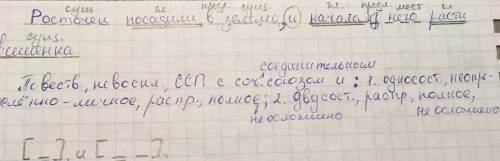 сущ. гл. предл. сущ. гл. предл. мест. гл.
Росточек посадили в землю, и начала из него расти
сущ.
вишанка
соединительным
Повеств., невоскл., ССП с соч. союзом и: 1. односост., неопре-
делённо-личное, распр., полное; 2. двусост., распр., полное,
не осложнено не осложнено
[ _ ], и [ _ _ ].